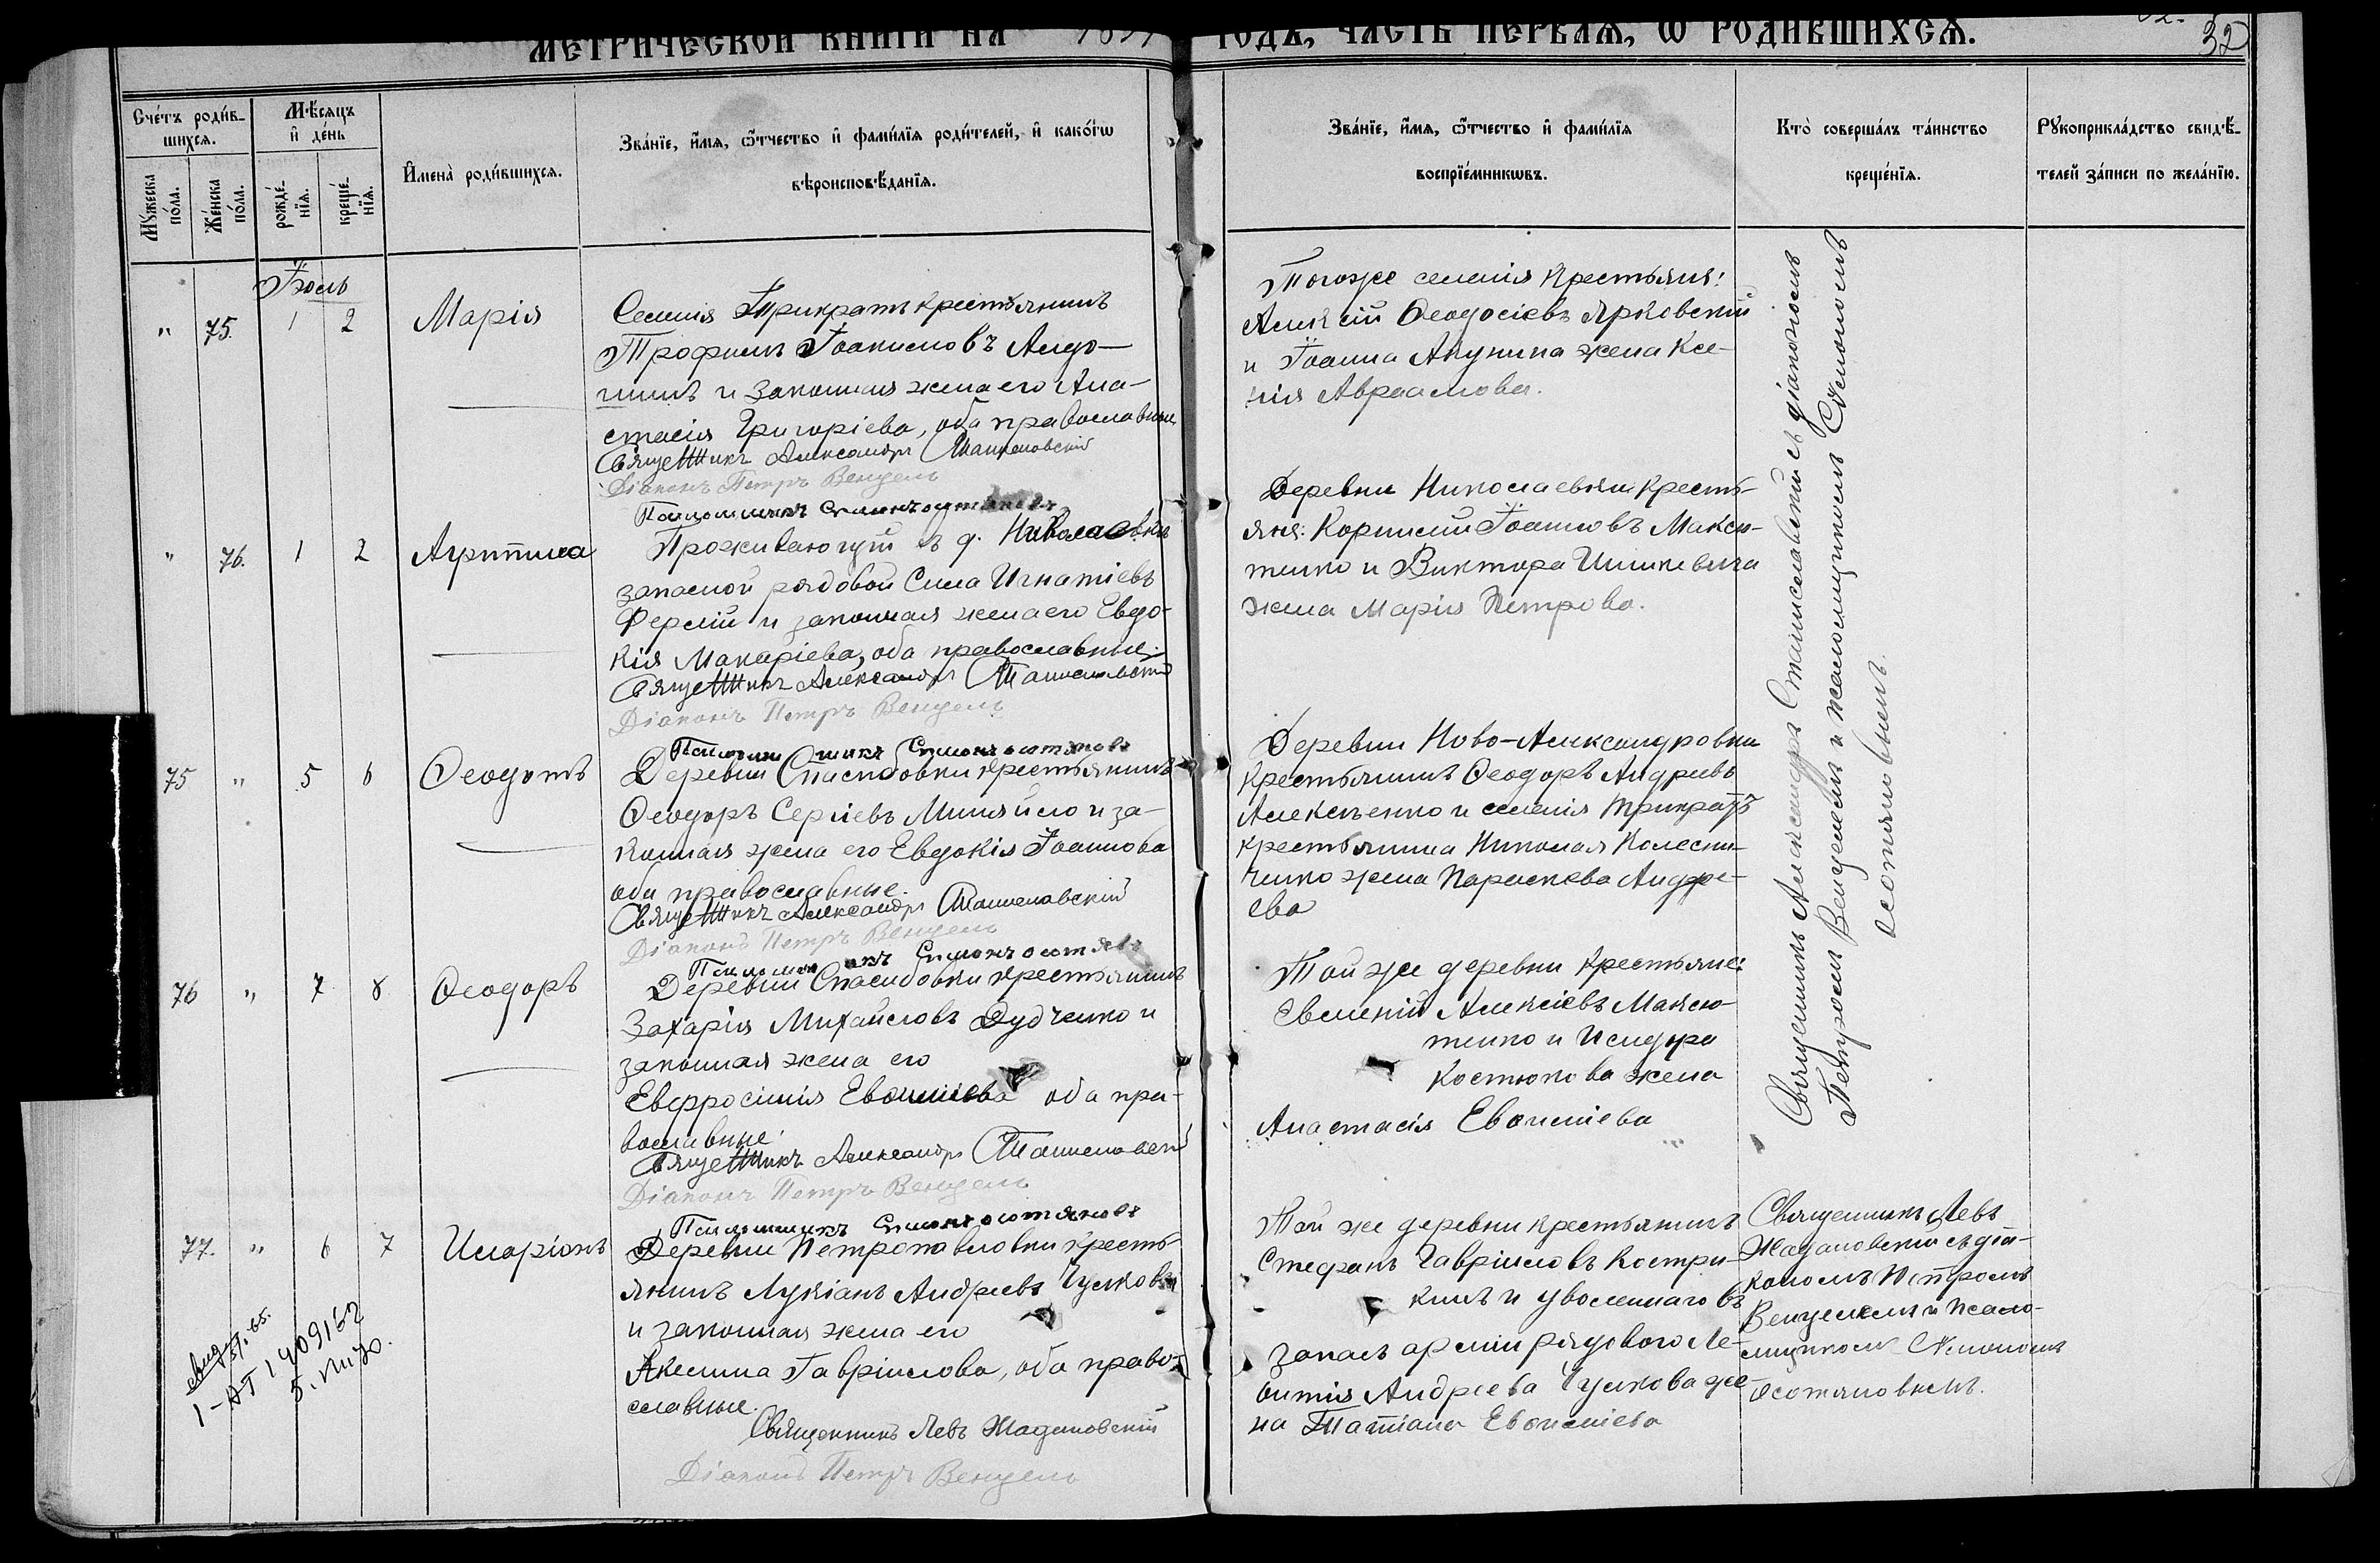 МЕТРИЧЕСКОЙ КНИГИ НА
ГОДЪ, ЧАСТЬ ПЕРВАЯ, Ѡ РОДИВШИХСЯ.
32
Счéтъ роди́в-
шихся.
Му́жеска
по́ла.
Же́нска
по́ла.
Мѣ́сяцъ
и҆ де́нь
рожде́-
нїя.
креще́-
нїя.
И҆мена̀ роди́вшихся.
Зва́нїе, и҆́мя, ѻ҆́тчество и҆ фами́лїя роди́телей, и҆ како́гѡ
вѣроисповѣ́данїя.
Зва́нїе, и҆́мя, ѻ҆́тчество и҆ фами́лїя
воспрїе́мникѡвъ.
Кто̀ соверша́лъ та́инство
креще́нїя.
Рꙋкоприкла́дство свидѣ́-
телей за́писи по жела́нїю.
Іюль
" 75. 1 2 Марія
Селенія Трикратъ крестьянинъ
Трофимъ Іоакимовъ
и законная жена его Ана-
стасія Григоріева, оба православные
Священникъ Александръ Станиславскій
Діаконъ Петръ Венцель
Псаломщикъ Симонъ Остяновъ
Тогоже селенія крестьяне:
Алексій Ѳеодосіевъ Ярковскій
и Іоанна Акунина жена Ксе-
нія Авраамова.
Священникъ Александръ Станиславскій съ діакономъ
Петромъ Венцелемъ и псаломщикомъ Симономъ
Остяновымъ.
" 76. 1 2 Агрипина
Проживающій въ д. Николаевкѣ
запасной рядовой Сила Игнатіевъ
и законная жена его Евдо-
кія Макаріева, оба православные.
Священникъ Александръ Станиславскій
Діаконъ Петръ Венцель
Псаломщикъ Симонъ Остяновъ
Деревни Николаевки кресть-
яне: Корнилій Іоанновъ Макси-
тенко и Виктора Шишкевича
жена Марія Петрова.
75 " 5 6 Ѳеодотъ
Деревни Спасибовки крестьянинъ
Ѳеодоръ Сергіевъ Миняйло и за-
конная жена его Евдокія Іоаннова
оба православные.
Священникъ Александръ Станиславскій
Діаконъ Петръ Венцель
Псаломщикъ Симонъ Остяновъ
Деревни Ново-Александровки
крестьянинъ Ѳеодоръ Андреевъ
Алексѣенко и селенія Трикратъ
крестьянина Николая Колесни-
ченко жена Параскева Андре-
ева
76 " 7 8 Ѳеодоръ
Деревни Спасибовки крестьянинъ
Захарія Михайловъ Дудченко и
законная жена его
Евфросинія Евѳиміева оба пра-
вославные.
Священникъ Александръ Станиславскій
Діаконъ Петръ Венцель
Псаломщикъ Симонъ Остяновъ
Той же деревни крестьяне:
Евгеній Алексіевъ Максю-
тенко и Исидора
Костюкова жена
Анастасія Евѳиміева
77. " 6 7 Иларіонъ
Деревни Петропавловки кресть-
янинъ Лукіанъ Андреевъ Чулковъ
и законная жена его
Акилина Гавріилова, оба право-
славные.
Священникъ Левъ Жадановскій
Діаконъ Петръ Венцель
Той же деревни крестьянинъ
Стефанъ Гавріиловъ Костри-
кинъ и уволеннаго въ
запасъ арміи рядового Ле-
онтія Андреева Чулкова же-
на Татіана Евѳиміева
Священникъ Левъ
Жадановскій съ діа-
кономъ Петромъ
Венцелемъ и псало-
мщикомъ Симономъ
Остяновымъ.
1-АТ 1409162